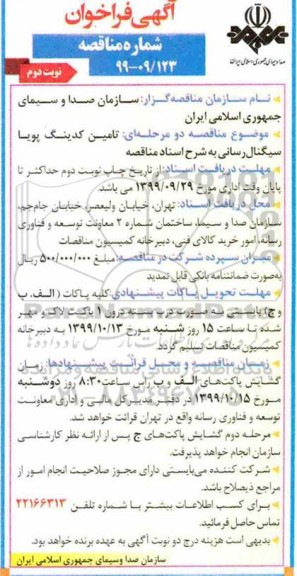 آگهی فراخوان
شماره مناقصه
۹۹-۰۹/۱۲۳
نوبت دوم
صدا و سیمای جمهوری اسلامی ایران
نام سازمان مناقصه‌گزار: سازمان صدا و سیمای
جمهوری اسلامی ایران
موضوع مناقصه دو مرحله‌ای: تامین کدینگ پویا
سیگنال رسانی به شرح اسناد مناقصه
مهلت دریافت اسناد: از تاریخ چاپ نوبت دوم حداکثر تا
پایان وقت اداری مورخ ۱۳۹۹/۰۹/۲۹ می باشد
محل دریافت اسناد: تهران، خیابان ولیعصر، خیابان جام‌جم،
سازمان صدا و سیما، ساختمان شماره ۲ معاونت توسعه و فناوری
رسانه، امور خرید کالای فنی، دبیرخانه کمیسیون مناقصات
میزان سپرده شرکت در مناقصه: مبلغ ۵۰۰/۰۰۰/۰۰۰ ریال
به‌صورت ضمانتنامه بانکی قابل تمدید
مهلت تحویل پاکات پیشنهادی: کلیه پاکات (الف، ب
و ج) بایستی به صورت در بسته درون ۱ پاکت لاک و مهر
شده تا ساعت ۱۵ روز شنبه مورخ ۱۳۹۹/۱۰/۱۳ به دبیرخانه
کمیسیون مناقصات تسلیم گردد
زمان مناقصه و محل قرائت پیشنهادها: زمان
گشایش پاکت‌های الف و ب رأس ساعت ۸:۳۰ روز دوشنبه
مورخ ۱۳۹۹/۱۰/۱۵ در دفتر مدیرکل مالی و اداری معاونت
توسعه و فناوری رسانه واقع در تهران قرائت خواهد شد.
مرحله دوم گشایش پاکت‌های ج پس از ارائه نظر کارشناسی
سازمان انجام خواهد پذیرفت.
شرکت کننده می‌بایستی دارای مجوز صلاحیت انجام امور از
مراجع ذیصلاح باشد.
برای کسب اطلاعات بیشتر با شماره تلفن ۲۲۱۶۶۳۱۳
تماس حاصل فرمائید.
بدیهی است هزینه درج دو نوبت آگهی به عهده برنده خواهد بود.
سازمان صدا وسیمای جمهوری اسلامی ایران